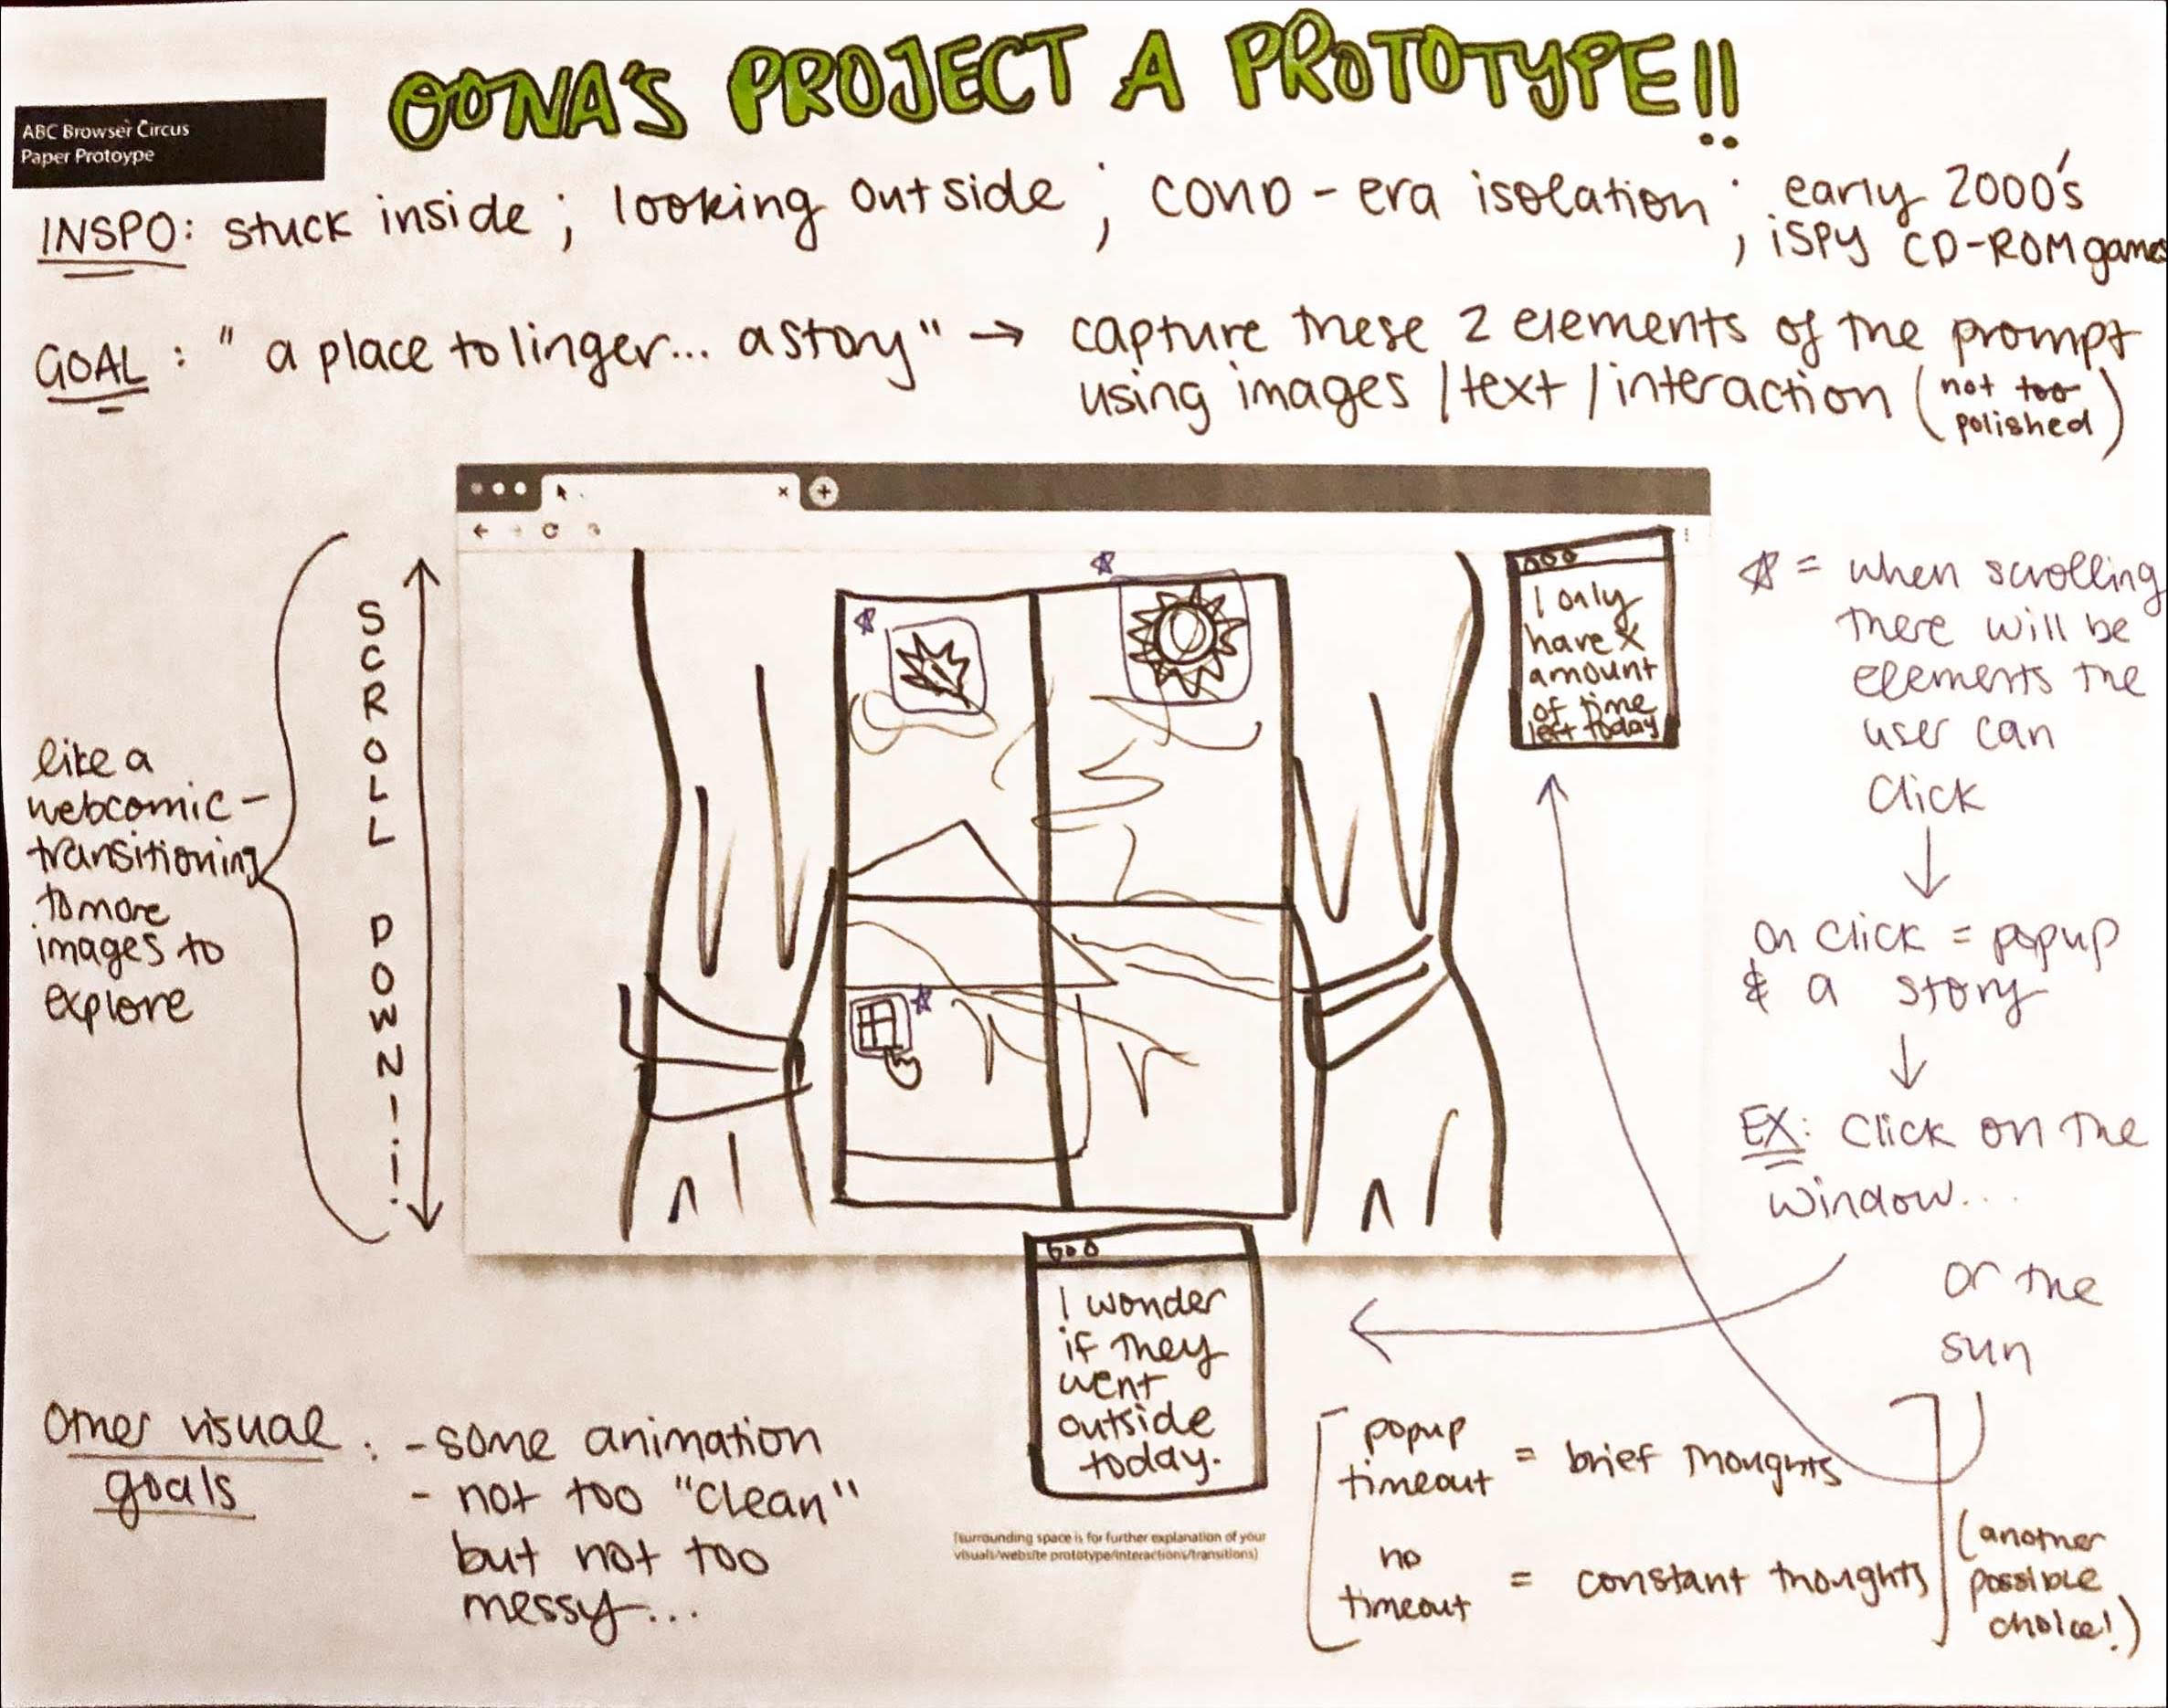 OONA'S PROJECT A PROTOTYPE!!
ABC Browser Circus
Paper Protoype
INSPO: stuck inside ; looking outside ; COVID-era isolation ; early 2000's
iSPY CD-ROM games
GOAL : "a place to linger... a story" → capture these 2 elements of the prompt
using images / text / interaction (not too
polished)
SCROLL DOWN!!
like a
webcomic-
transitioning
to more
images to
explore
I only
have X
amount
of time
left today
☆ = when scrolling
there will be
elements the
user can
click
↓
on click = popup
& a story
↓
EX: click on the
window...
or the
sun
I wonder
if they
went
outside
today.
Other visual
goals :
- some animation
- not too "clean"
but not too
messy...
[surrounding space is for further explanation of your
visuals/website prototype/interactions/transitions)
popup
timeout = brief thoughts
no
timeout = constant thoughts
(another
possible
choice!)